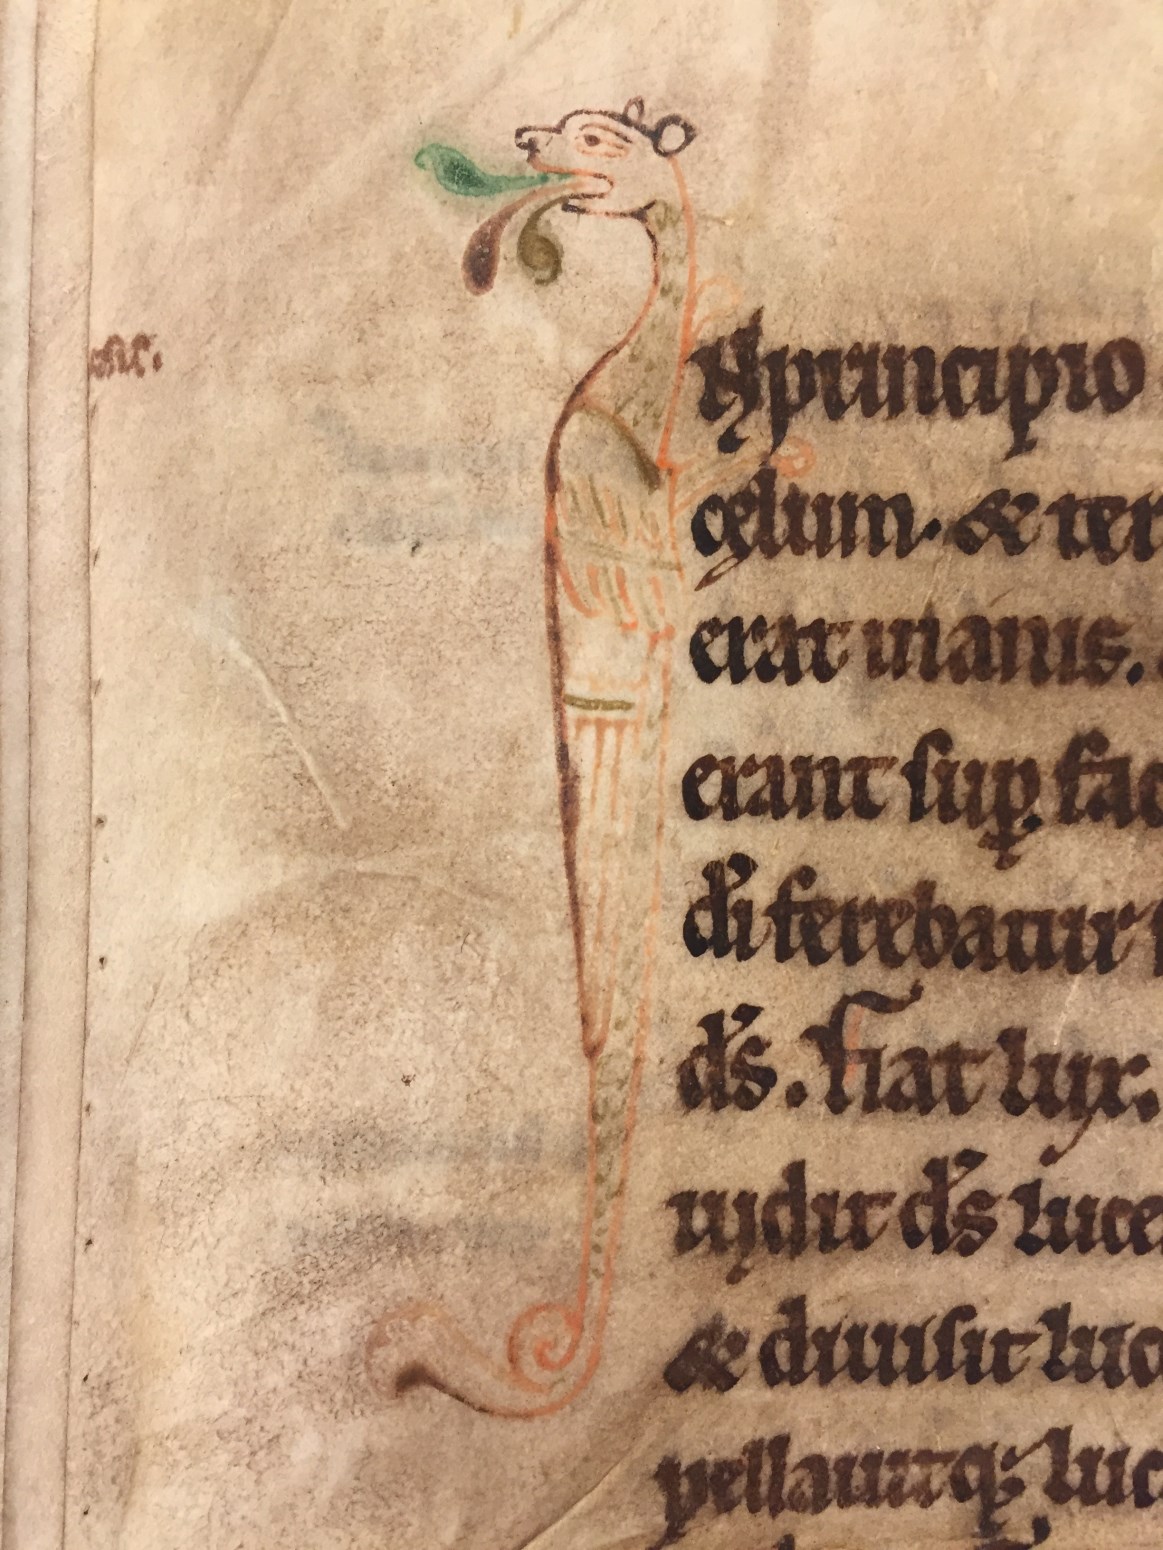 N principio
cęlum. & ter
erat inanis.
erant sup̱ fac
dī ferebatur
dꝰs. Fiat lux.
uidit dꝰs luce
& diuisit luc
pellauitq; luc